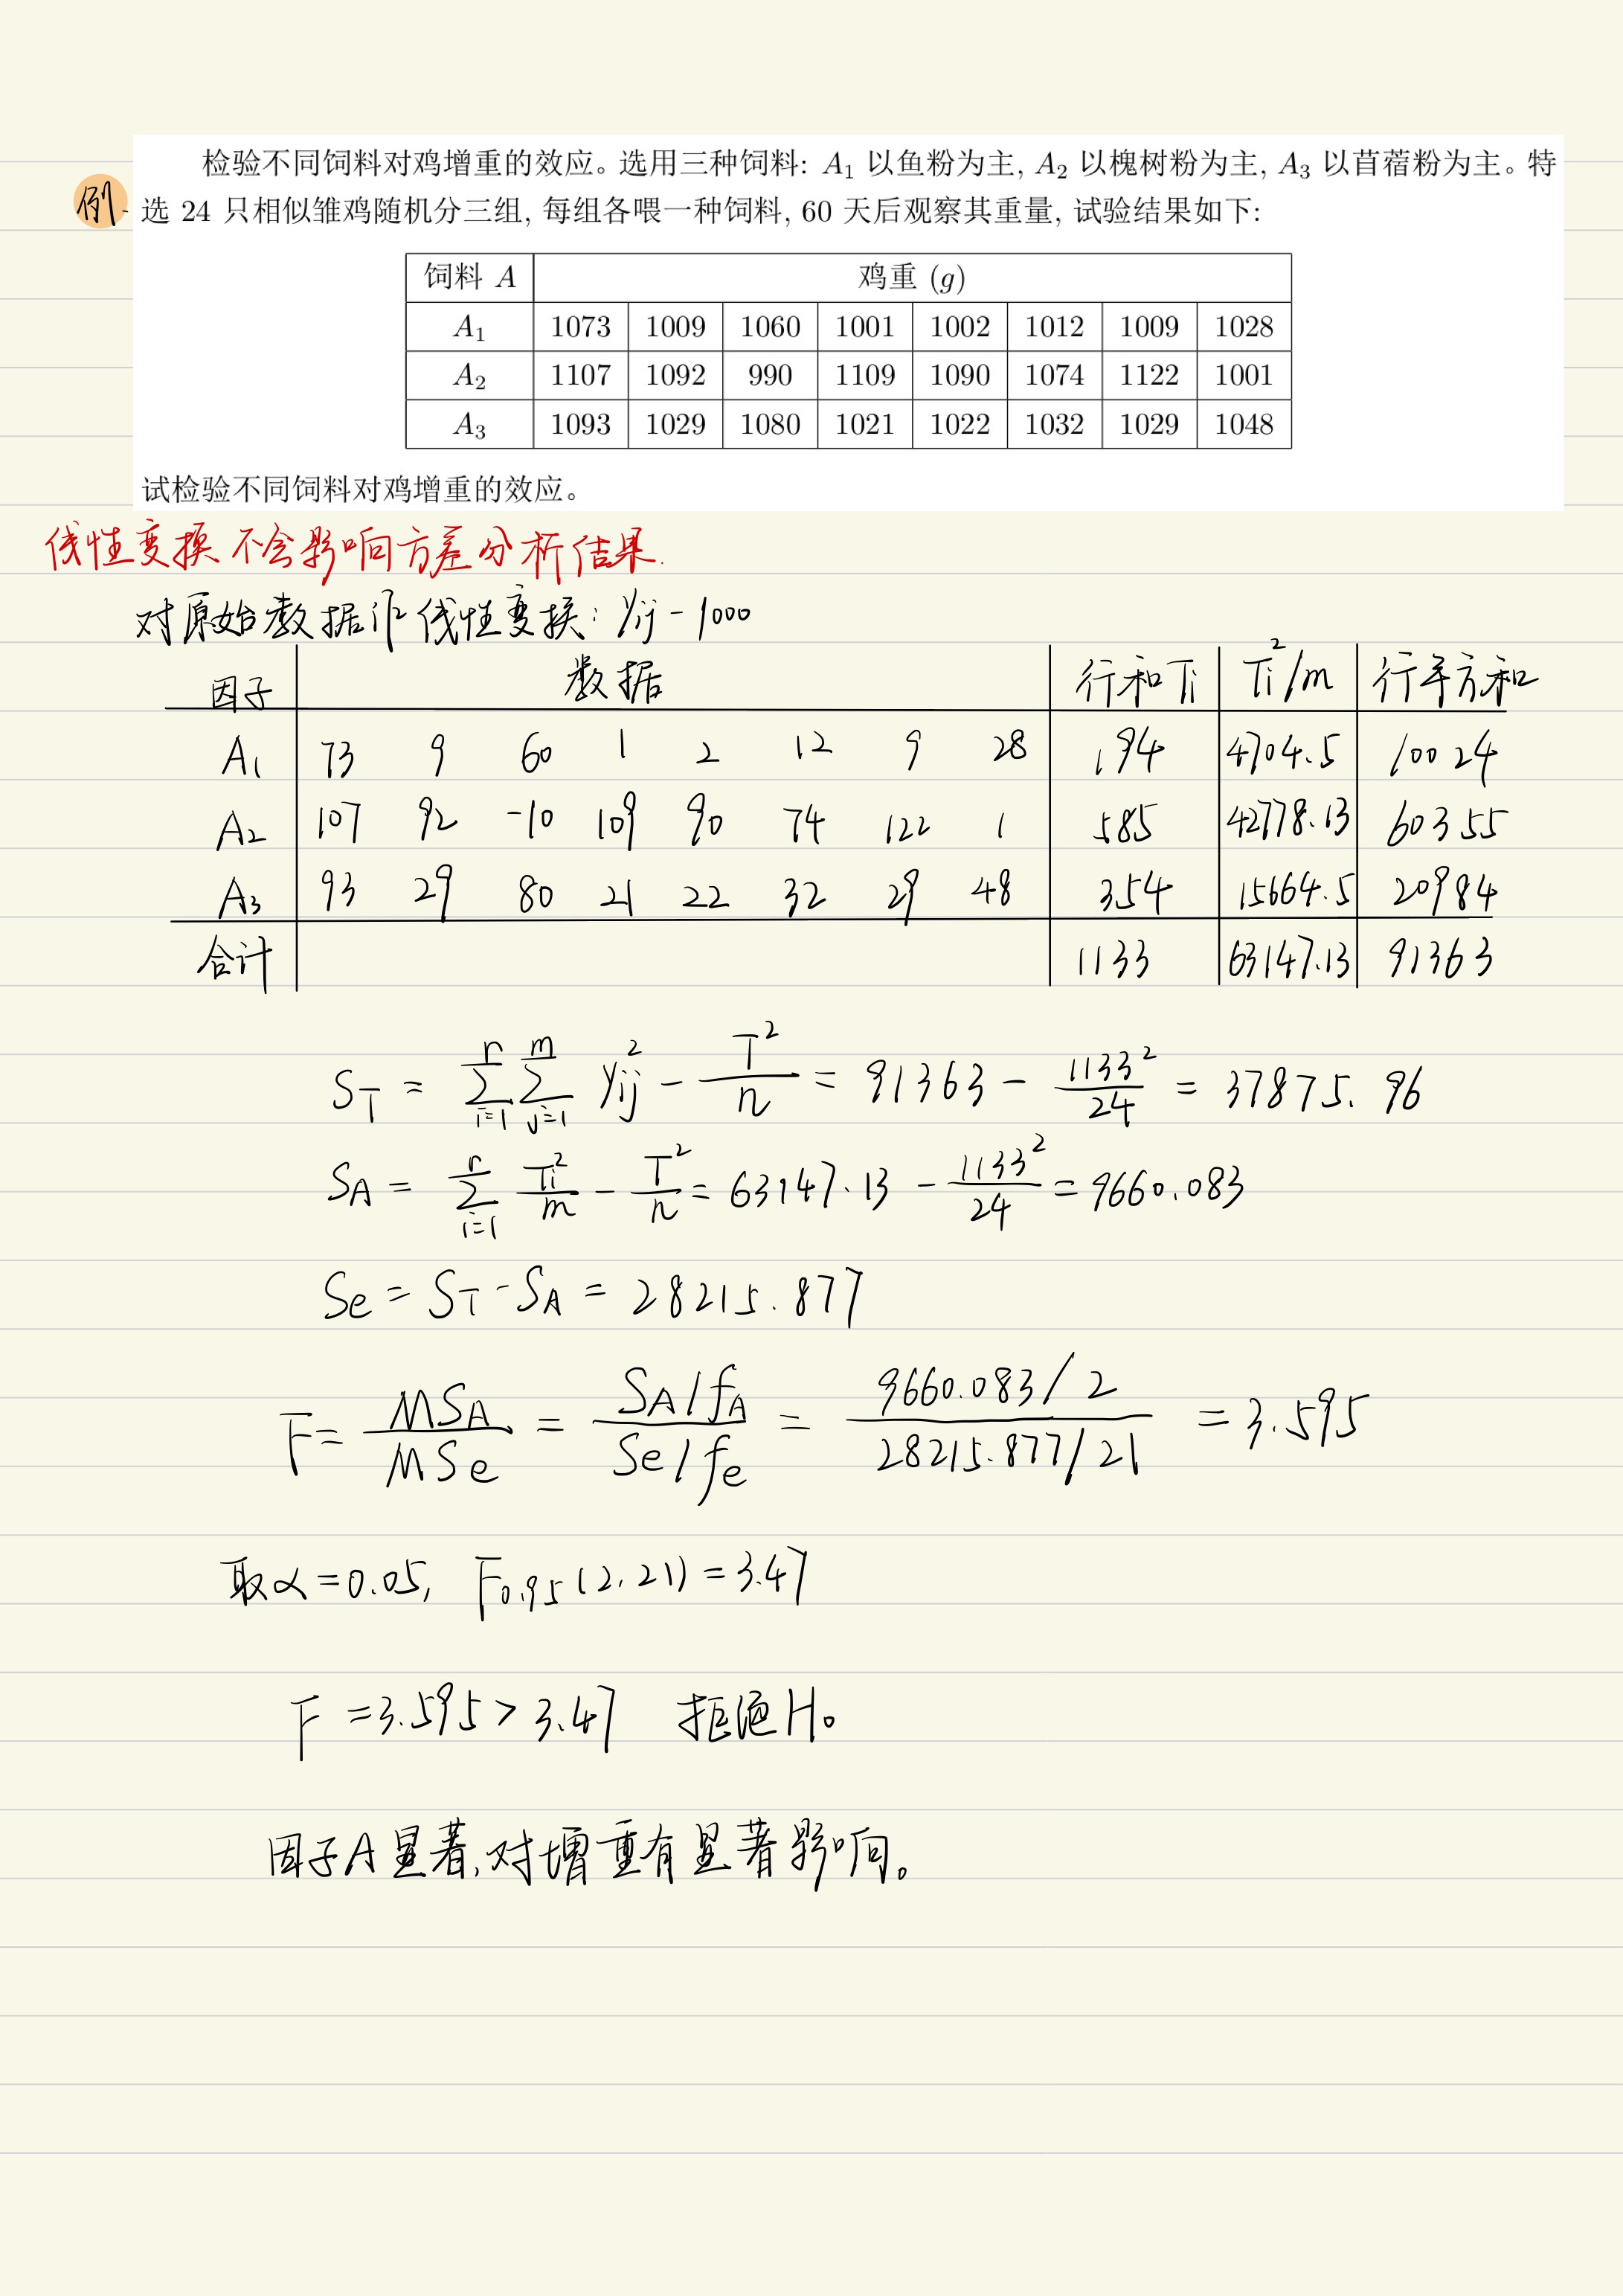 检验不同饲料对鸡增重的效应。选用三种饲料: A₁ 以鱼粉为主, A₂ 以槐树粉为主, A₃ 以苜蓿粉为主。特
例. 选 24 只相似雏鸡随机分三组, 每组各喂一种饲料, 60 天后观察其重量, 试验结果如下:
饲料 A 鸡重 (g)
A₁ 1073 1009 1060 1001 1002 1012 1009 1028
A₂ 1107 1092 990 1109 1090 1074 1122 1001
A₃ 1093 1029 1080 1021 1022 1032 1029 1048
试检验不同饲料对鸡增重的效应。
线性变换不会影响方差分析结果.
对原始数据作线性变换: yij - 1000
因子 数据 行和Ti Ti²/m 行平方和
A₁ 73 9 60 1 2 12 9 28 194 4704.5 10024
A₂ 107 92 -10 109 90 74 122 1 585 42778.13 60355
A₃ 93 29 80 21 22 32 29 48 354 15664.5 20984
合计 1133 63147.13 91363
S_T = \sum_{i=1}^{r} \sum_{j=1}^{m} y_{ij}^2 - \frac{T^2}{n} = 91363 - \frac{1133^2}{24} = 37875.96
S_A = \sum_{i=1}^{r} \frac{T_i^2}{m} - \frac{T^2}{n} = 63147.13 - \frac{1133^2}{24} = 9660.083
Se = S_T - S_A = 28215.877
F = \frac{MS_A}{MSe} = \frac{S_A/f_A}{Se/f_e} = \frac{9660.083/2}{28215.877/21} = 3.595
取α=0.05, F₀.₉₅(2,21)=3.47
F =3.595 > 3.47 拒绝H₀
因子A显著,对增重有显著影响。